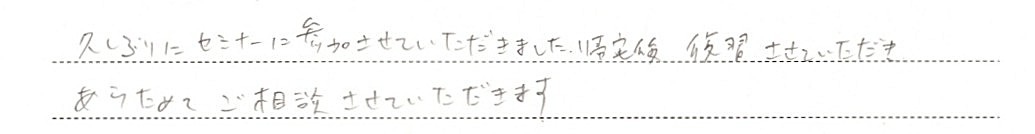 久しぶりにセミナーに参加させていただきました.帰宅後 復習 させていただき
あらためて ご相談 させていただきます